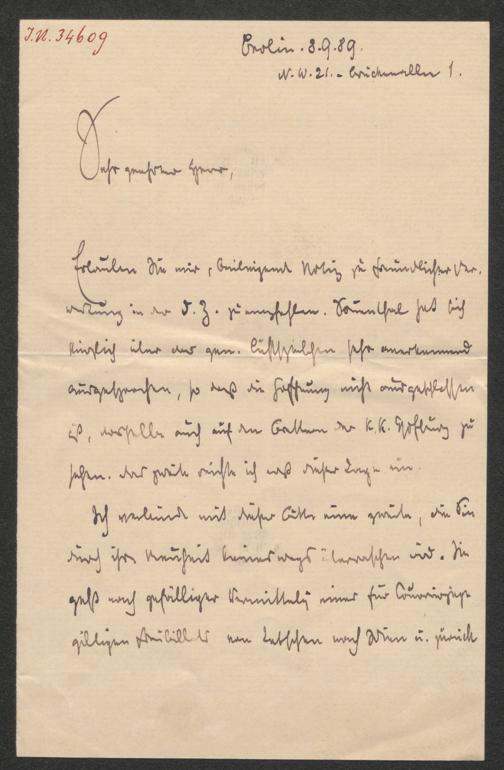 J.N. 34609
Berlin. 3.9.89.
N.W. 21. - 1.
Sehr geehrter Herr,
Erlauben Sie mir, beiliegende Notiz zu freundlicher Ver-
wertung in der D. Z. zu empfehlen. Sonnenthal hat sich
kürzlich über das gen. Lustspielchen sehr anerkennend
ausgesprochen, so daß die Hoffnung nicht ausgeschlossen
ist, dasselbe auch auf den Brettern der K.K. Hofburg zu
sehen. Das zweite reichte ich erst dieser Tage ein.
Ich verbinde mit dieser Bitte eine zweite, die Sie
durch ihre Neuheit keineswegs überraschen wird. Sie
geht nach gefälliger Vermittelung eines für Courierzüge
giltigen Freibillets von Tetschen nach Wien u. zurück